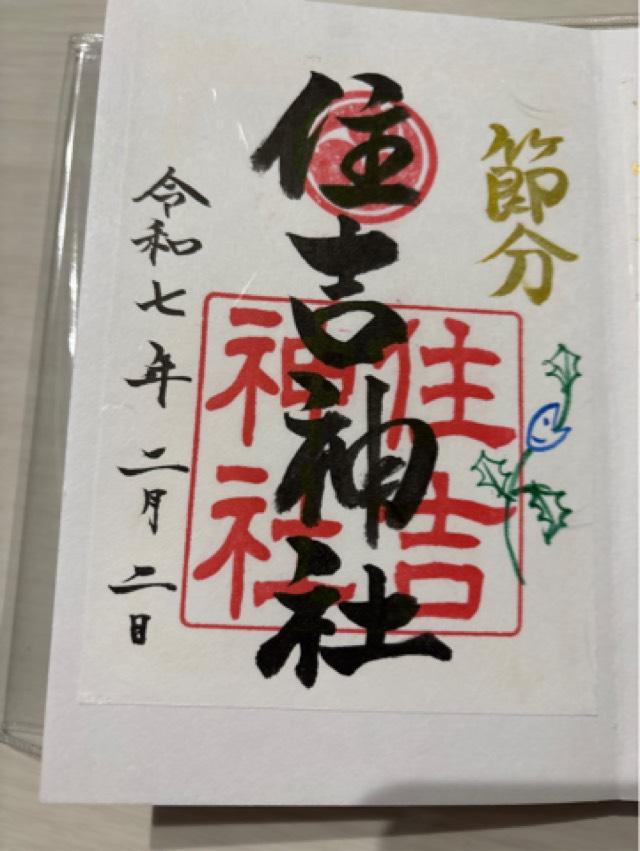 節分
住吉神社
住吉
神社
令和七年二月二日